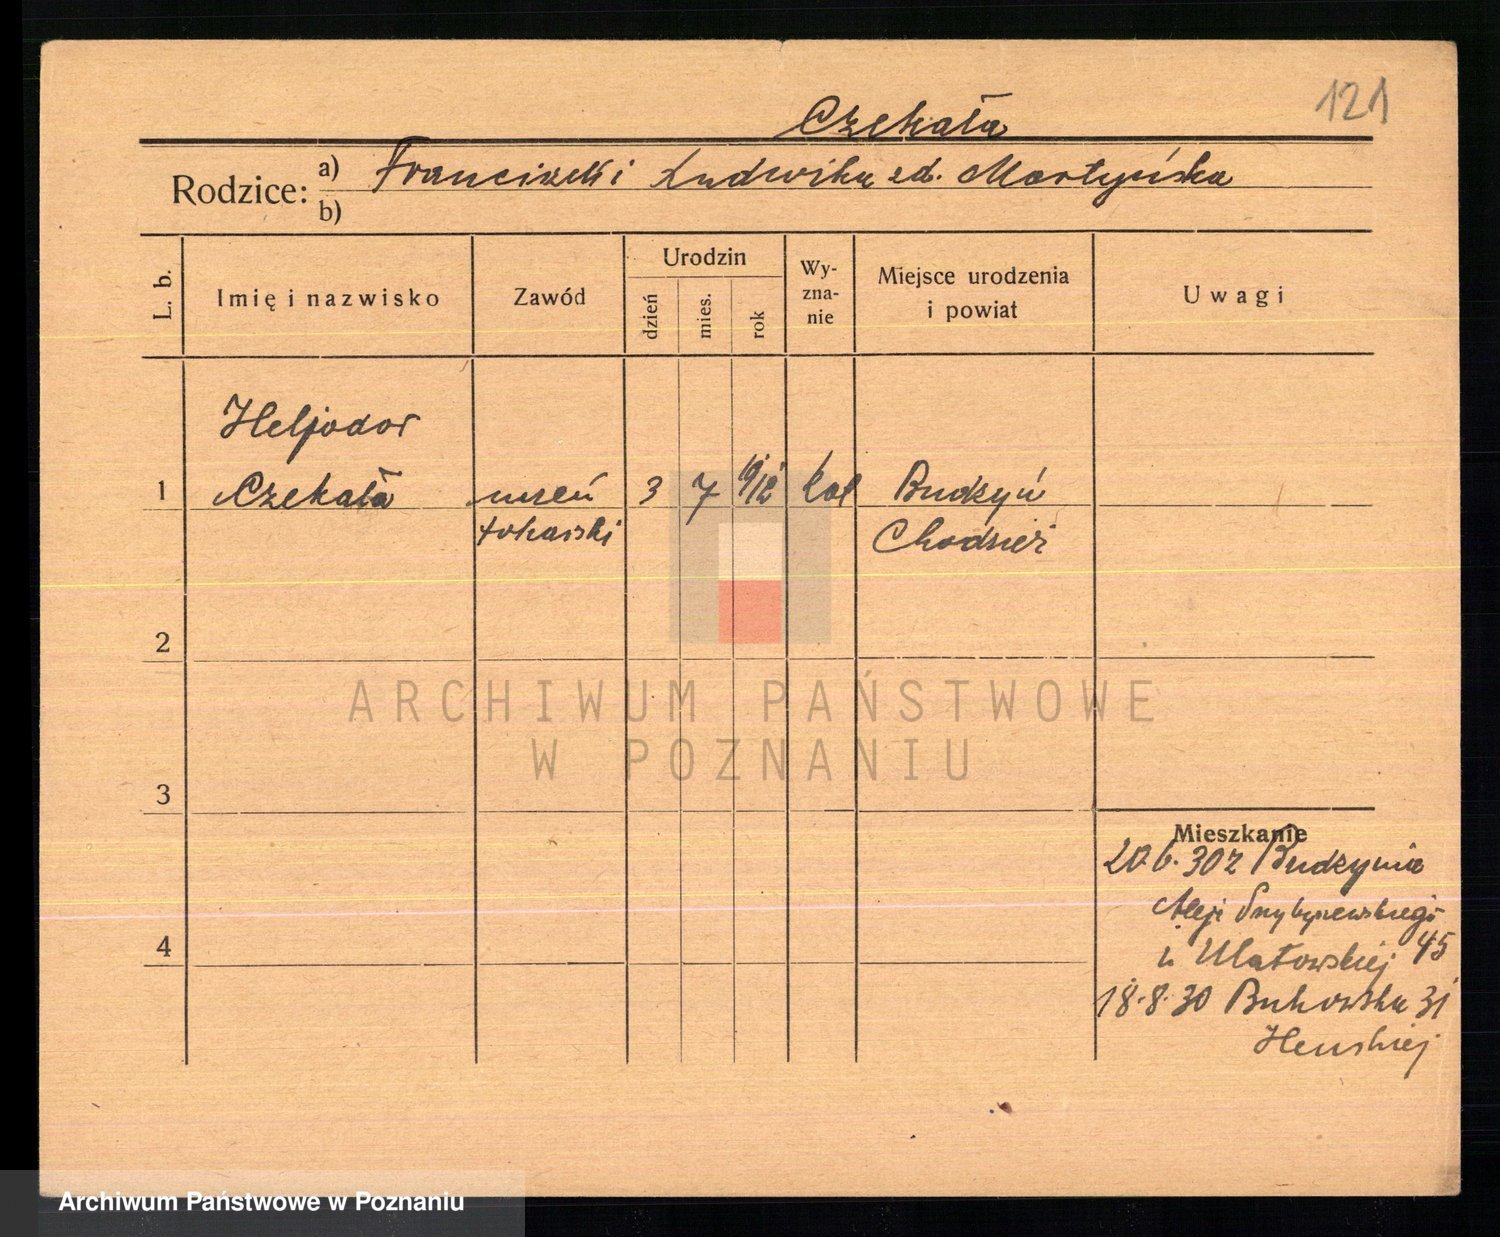 121
Czekała
Rodzice: a) Franciszek i Ludwika zd. Martyńska
b)
L. b. Imię i nazwisko Zawód Urodzin dzień mies. rok Wy-zna-nie Miejsce urodzenia i powiat Uwagi
Heljodor
1 Czekała uczeń 3 7 1912 kat Budzyń
tokarski Chodzież
2
ARCHIWUM PAŃSTWOWE
W POZNANIU
3
Mieszkanie
20.6.30 z Budzynia
Aleje Przybyszewskiego
4 45
u Ulatowskiej
18.8.30 Bukowska 31
Archiwum Państwowe w Poznaniu